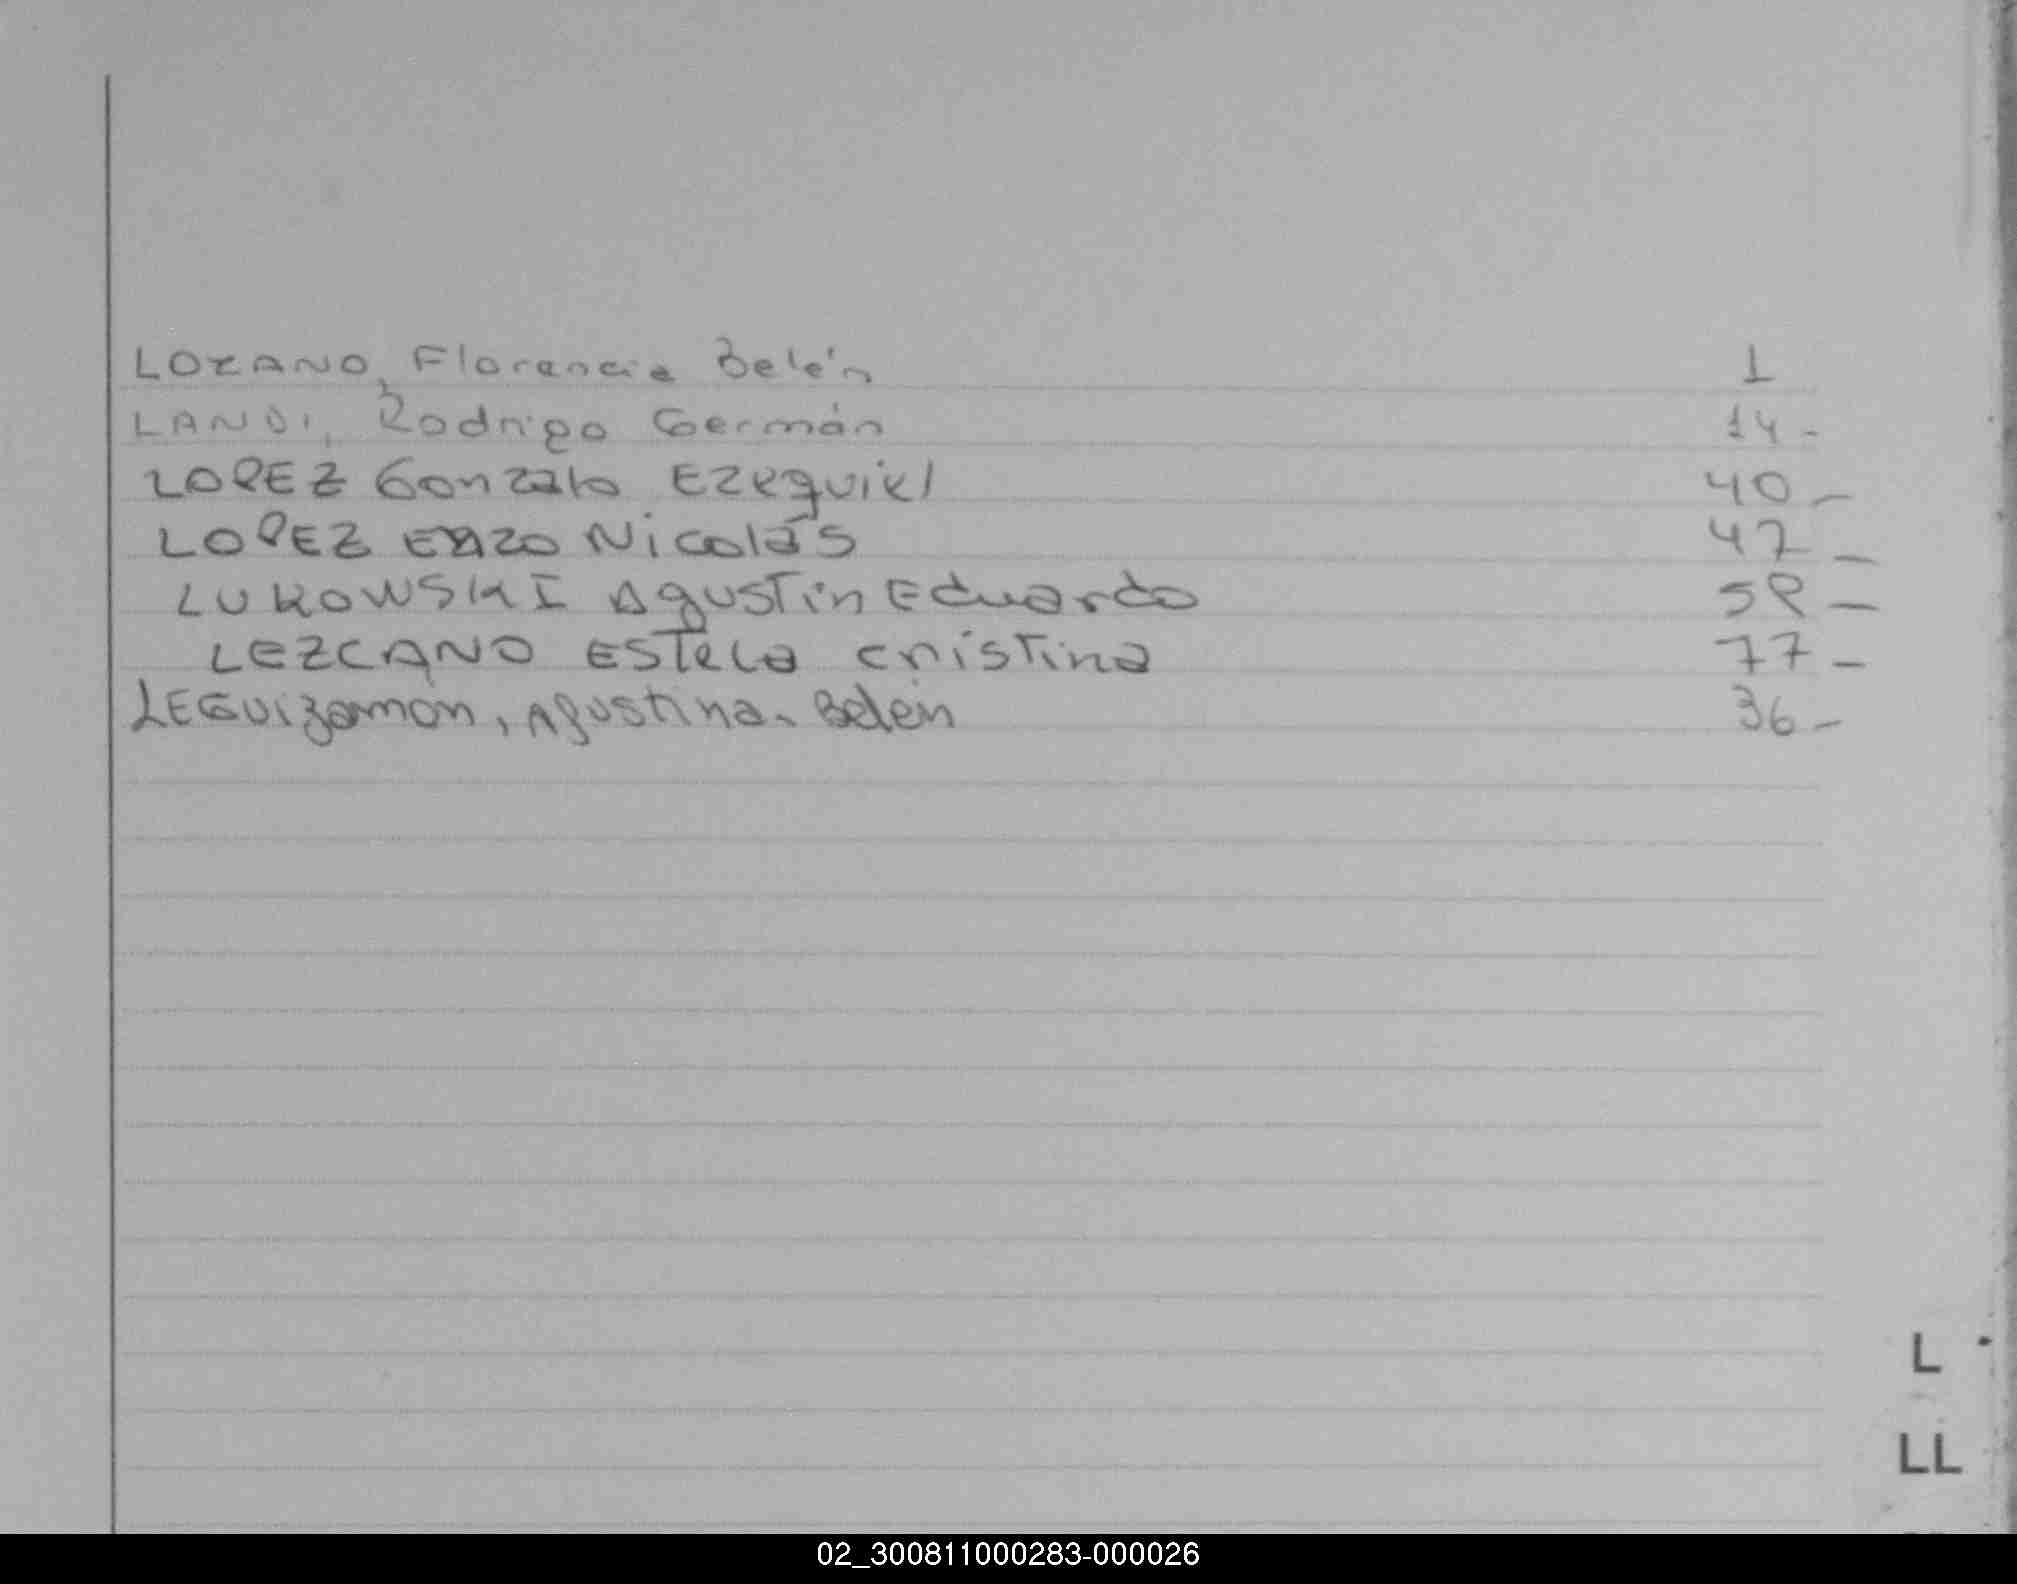 LOZANO, Florencia Belén 1
LANDI, Rodrigo Germán 14-
LOPEZ Gonzalo Ezequiel 40-
LOPEZ Enzo Nicolás 47-
LUKOWSKI Agustin Eduardo 58-
LEZCANO Estela Cristina 77-
LEGUizamón, Agustina Belén 36-
L
LL
02_300811000283-000026